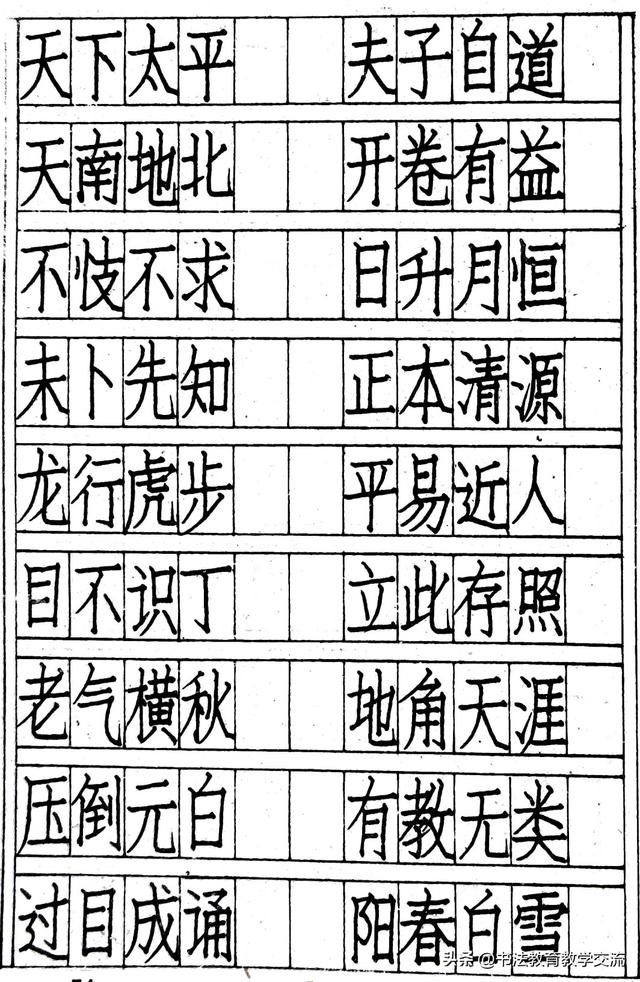 天下太平 夫子自道
天南地北 开卷有益
不忮不求 日升月恒
未卜先知 正本清源
龙行虎步 平易近人
目不识丁 立此存照
老气横秋 地角天涯
压倒元白 有教无类
过目成诵 阳春白雪
头条 @书法教育教学交流